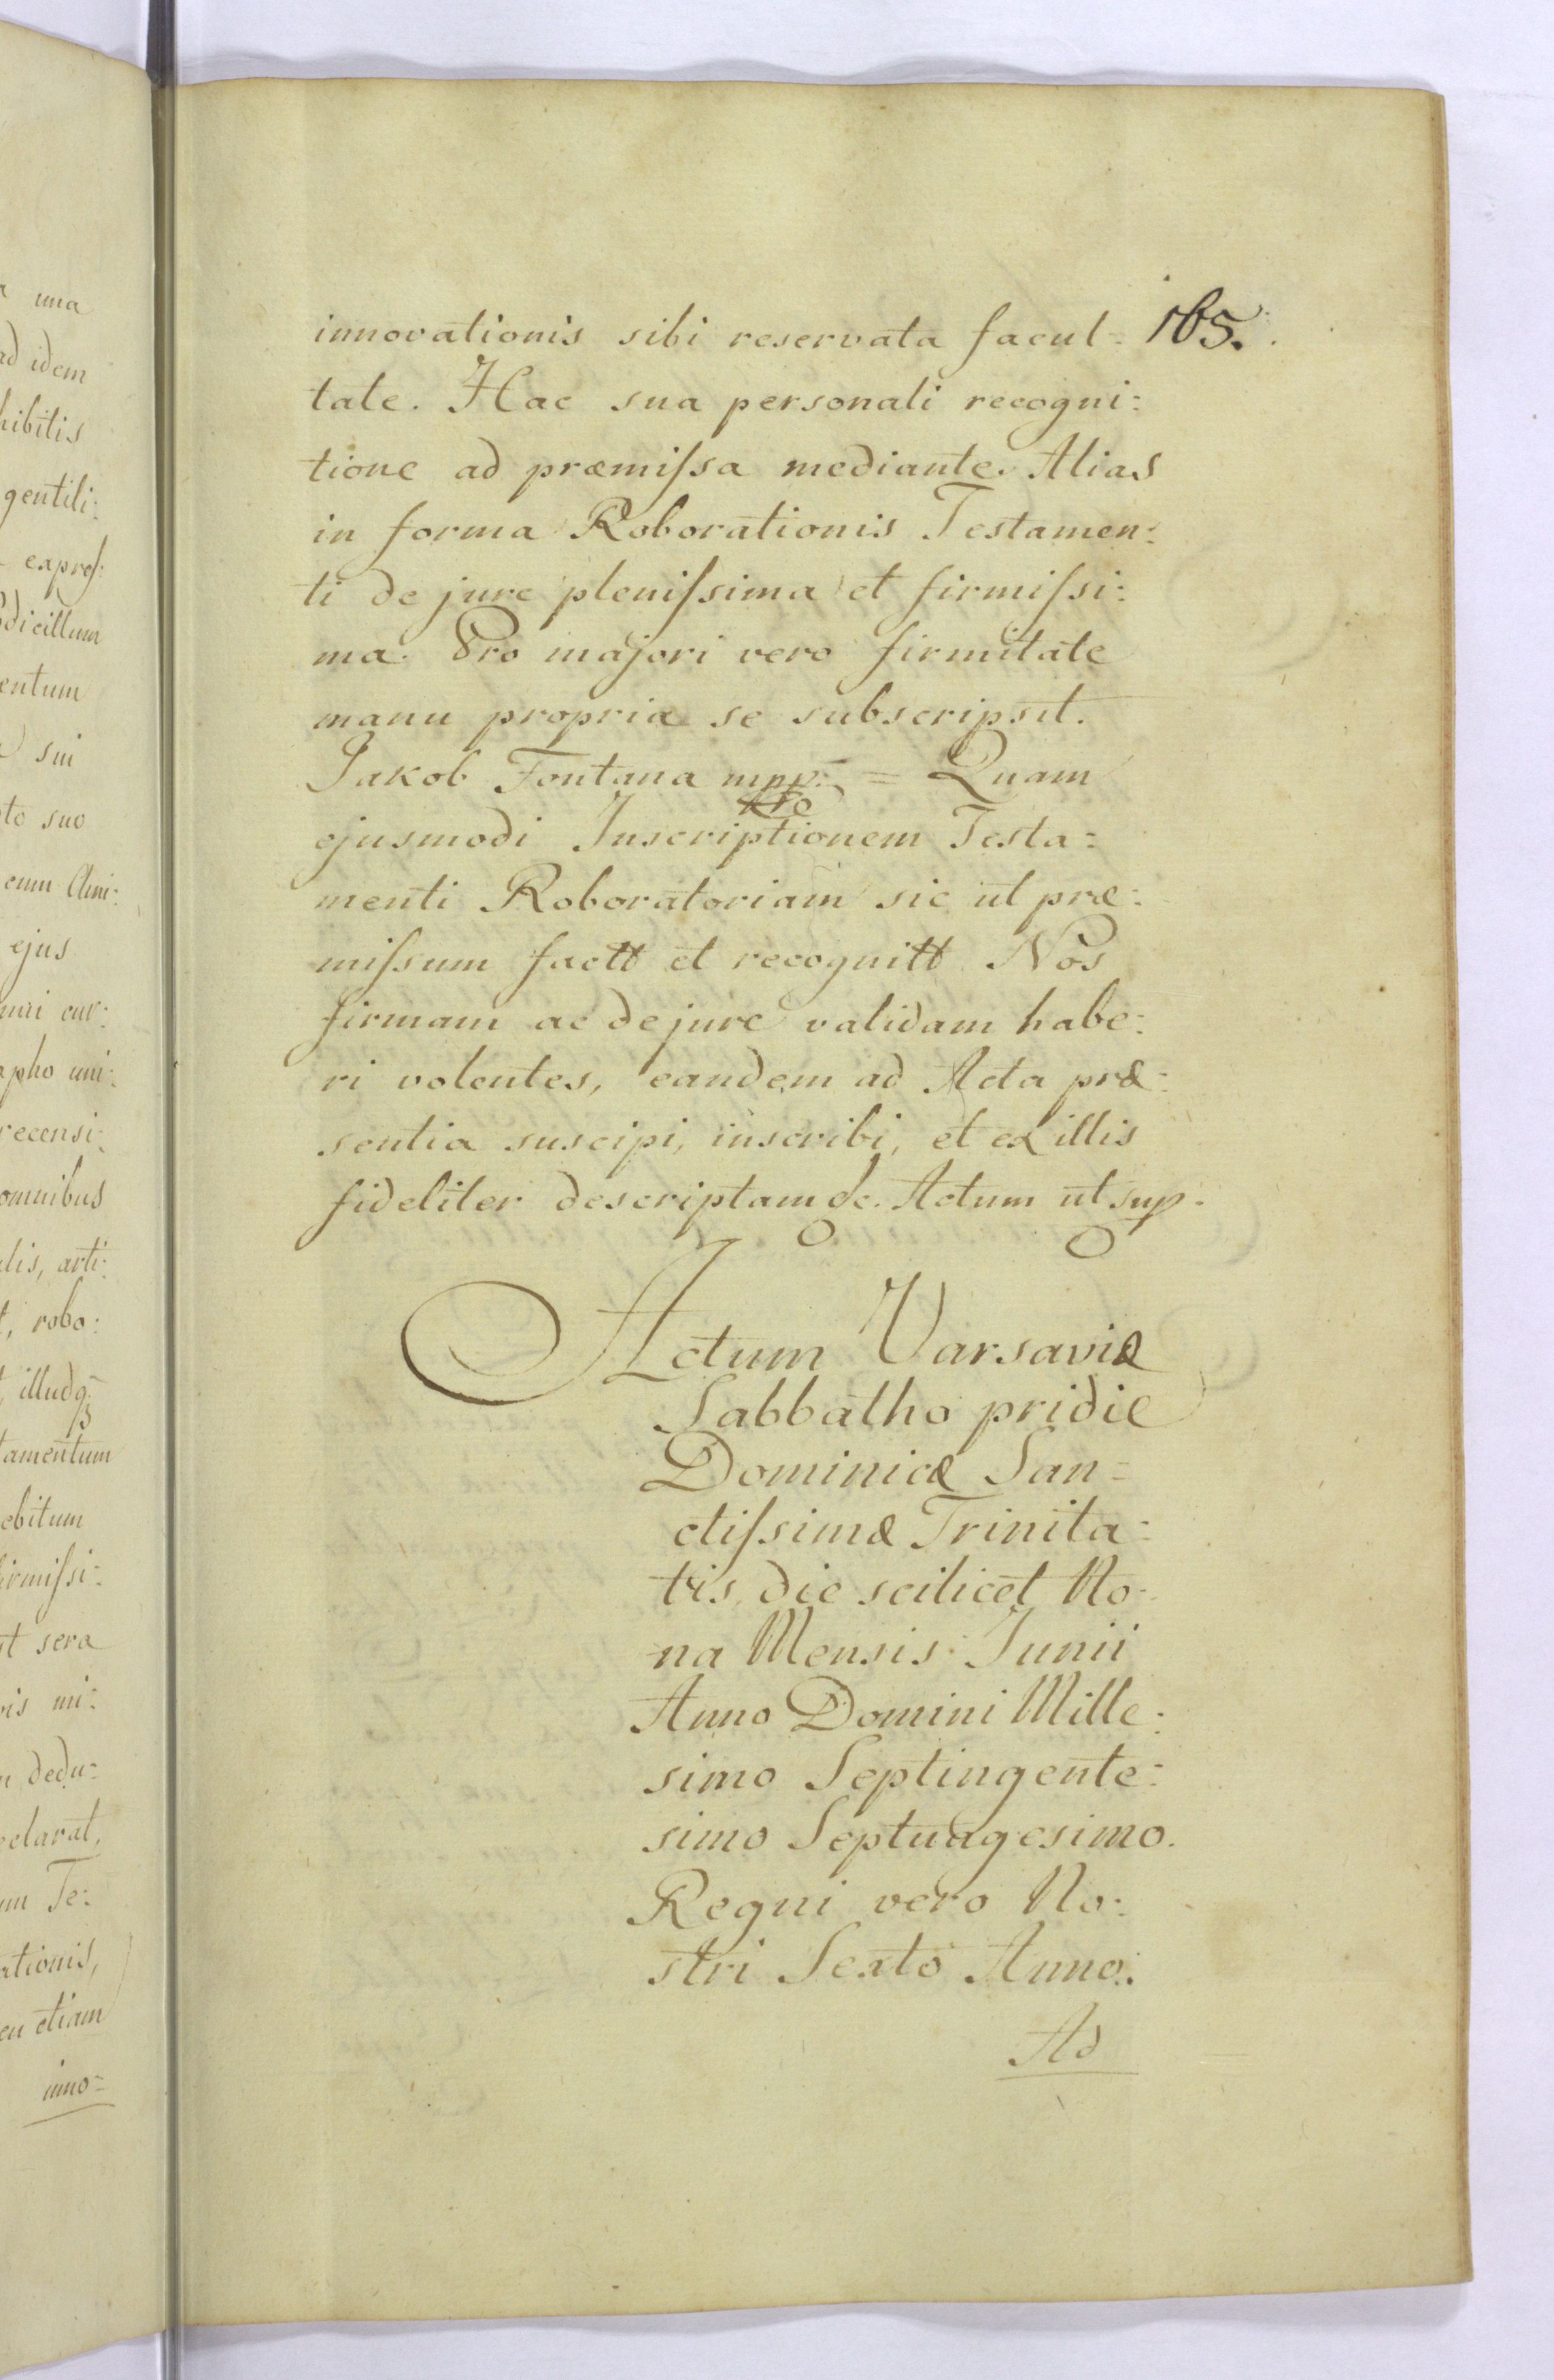 innovationis sibi reservata facul= 165.
tate. Hac sua personali recogni:
tione ad præmiſsa mediante. Alias
in forma Roborationis Testamen:
ti de jure pleniſsima et firmiſsi:
ma. Pro majori vero firmitate
manu propria se subscripsit.
Jakob Fontana mpp. = Quam
ejusmodi Inscriptionem Testa=
menti Roboratoriam sic ut præ:
miſsum factt et recognitt Nos
firmam ac de jure validam habe:
ri volentes, eandem ad Acta præ:
sentia suscipi, inscribi, et ex illis
fideliter descriptam &c. Actum ut sup.
Actum Varsaviæ
Sabbatho pridie
Dominicæ San=
ctiſsimæ Trinita:
tis, die scilicet No-
na Mensis Junii
Anno Domini Mille:
simo Septingente:
simo Septuagesimo.
Regni vero No:
stri Sexto Anno.
Ad
una
ad idem
hibitis
gentili:
expreſ:
dicillum
entum
sui
to suo
cum Ani:
ejus
apho uni:
recensi:
omnibus
lis, arti:
, robo:
illudq
tamentum
ebitum
firmiſsi:
t sera
is mi:
dedu:
eclarat,
m Te:
ationis,
eu etiam
inno=